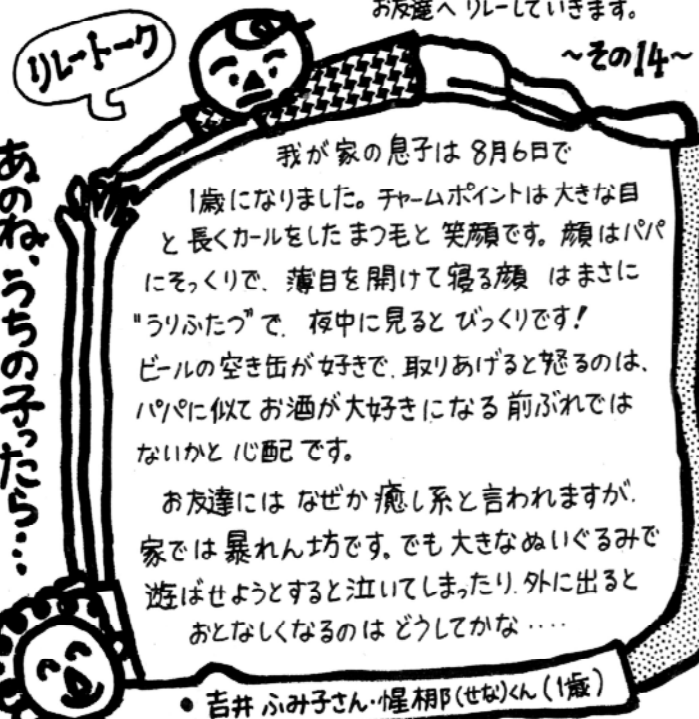 お友達へリレーしていきます。
リレートーク
～その14～
あのね、うちの子ったら…
我が家の息子は8月6日で
1歳になりました。チャームポイントは大きな目
と長くカールをしたまつ毛と笑顔です。顔はパパ
にそっくりで、薄目を開けて寝る顔はまさに
"うりふたつ"で、夜中に見るとびっくりです!
ビールの空き缶が好きで、取りあげると怒るのは、
パパに似てお酒が大好きになる前ぶれでは
ないかと心配です。
お友達にはなぜか癒し系と言われますが、
家では暴れん坊です。でも大きなぬいぐるみで
遊ばせようとすると泣いてしまったり、外に出ると
おとなしくなるのはどうしてかな‥‥
・吉井ふみ子さん・惺梛(せな)くん(1歳)